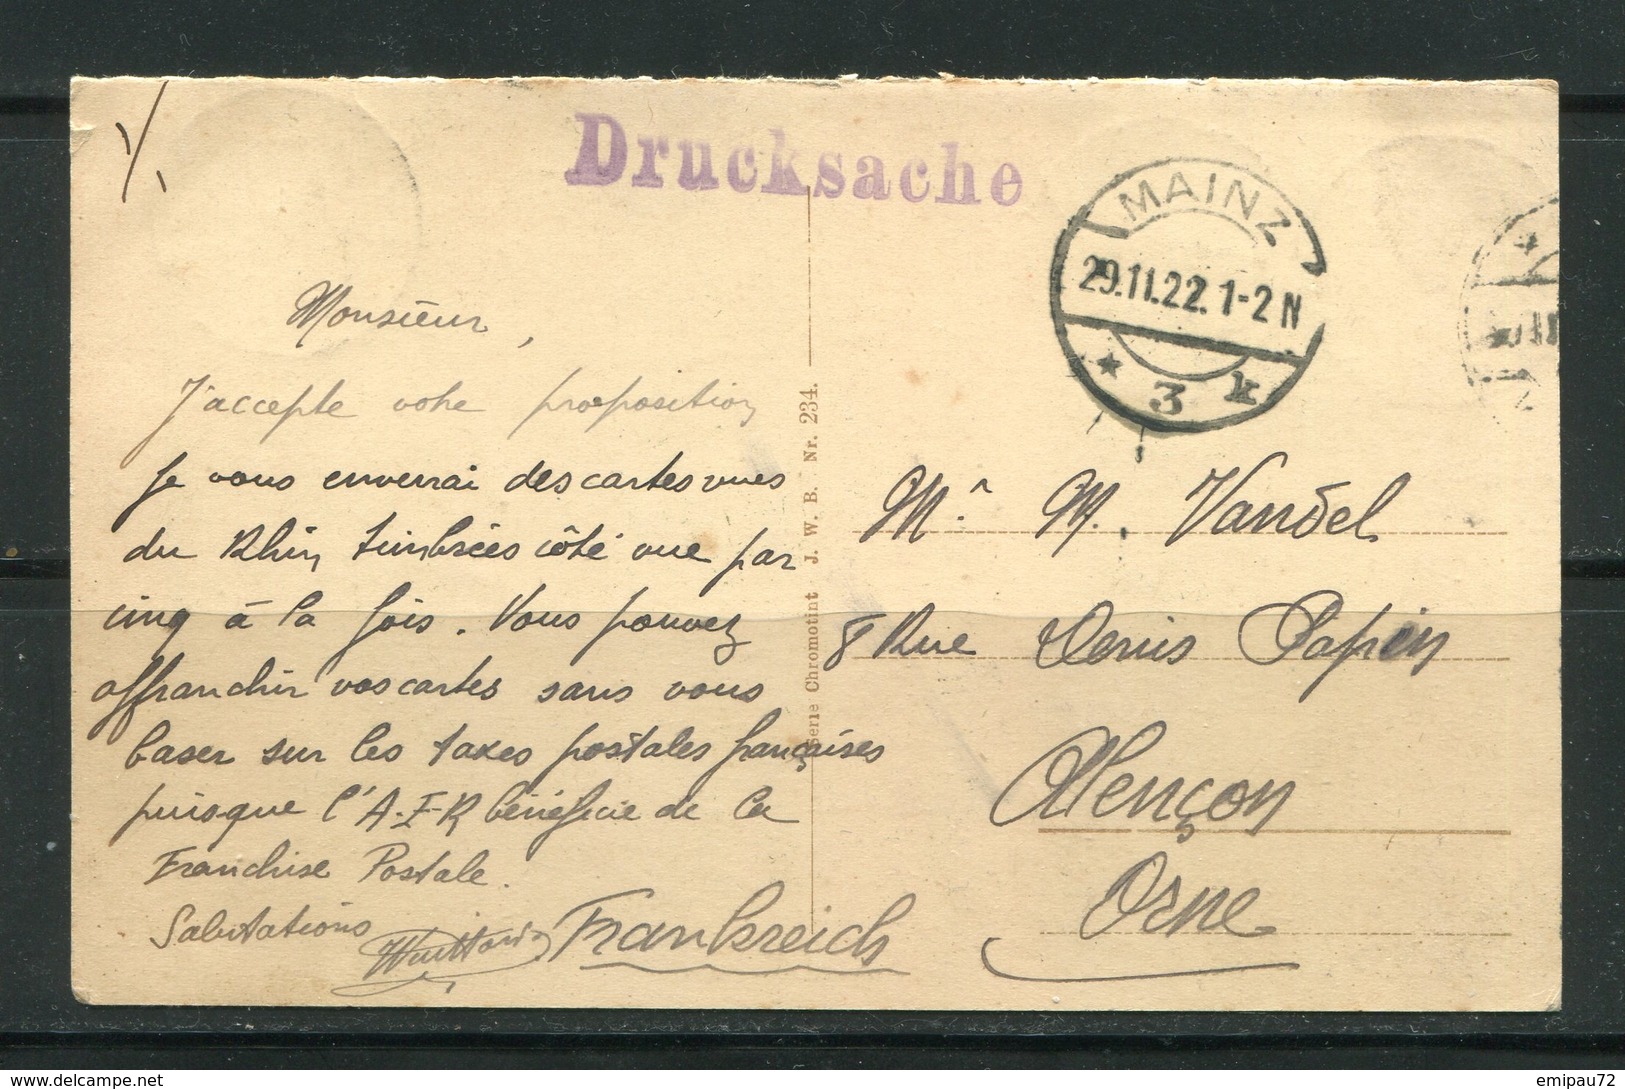 Drucksache
MAINZ
29.11.22.1-2N
* 3 k
Monsieur,
J'accepte votre proposition
je vous enverrai des cartes vues
du Rhin timbrées côté vue par
cinq à la fois. Vous pouvez
affranchir vos cartes sans vous
baser sur les taxes postales françaises
puisque l'A-F-R bénéficie de la
Franchise Postale.
Salutations
Serie Chromotint J. W. B. Nr. 234.
Mr. M. Vandel
8 Rue Denis Papin
Alençon
Orne
Frankreich
emipau72